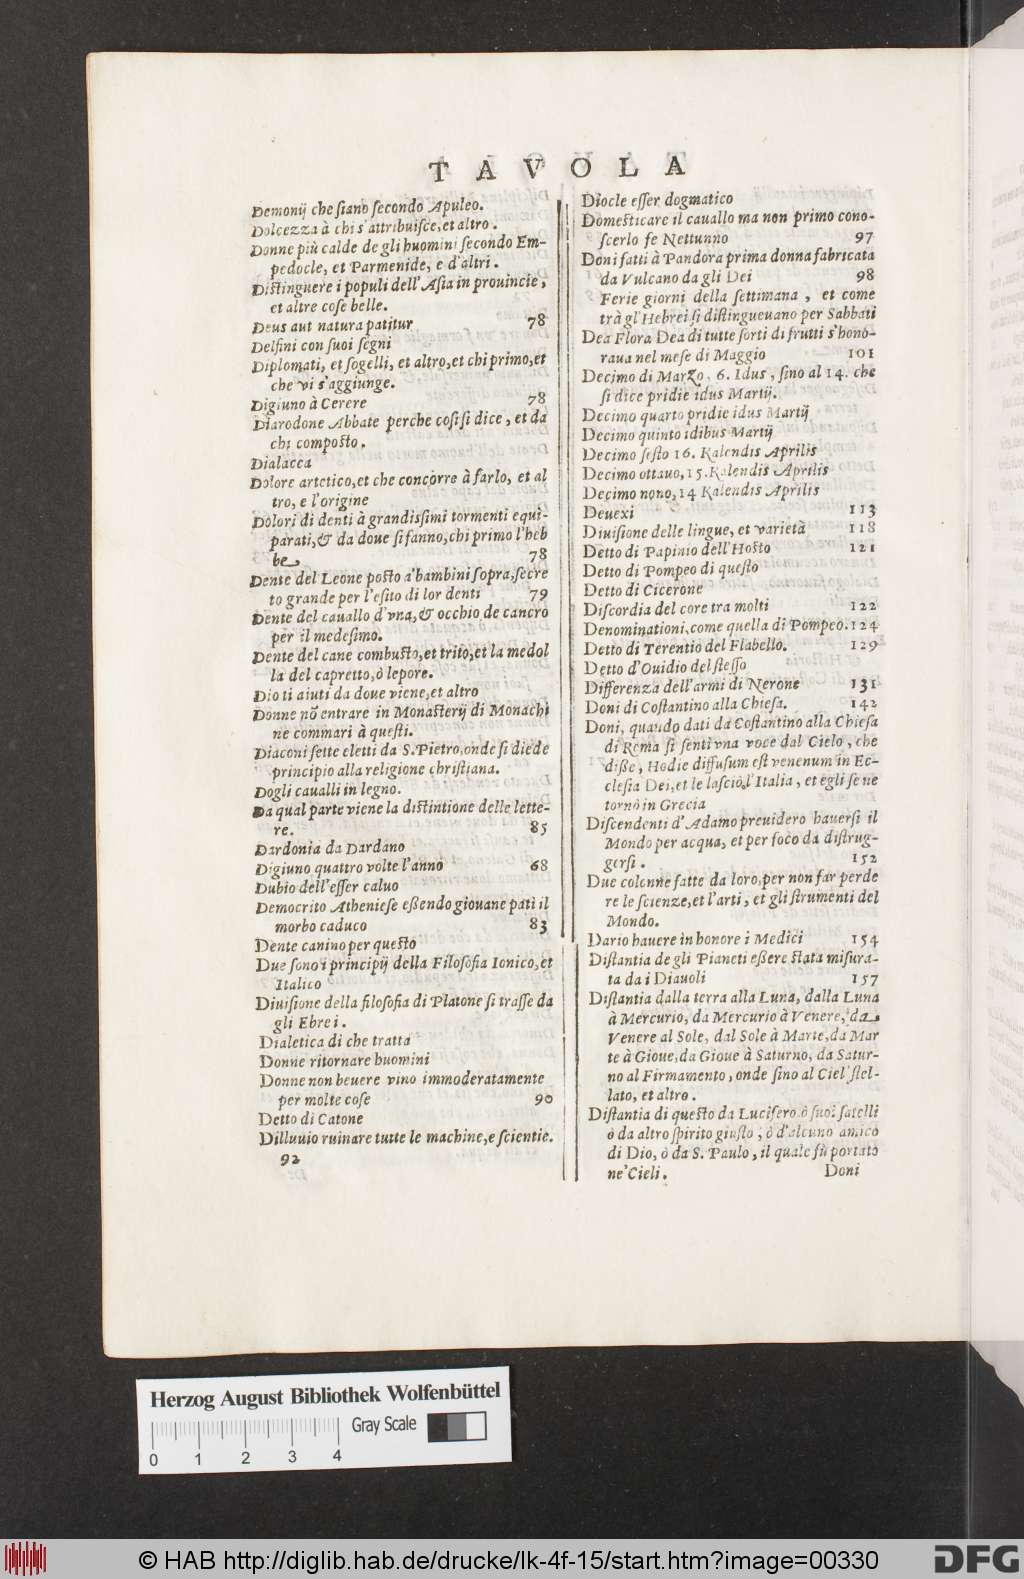 TAVOLA
Demonij che ſiano ſecondo Apuleo.
Dolcezza à chi s'attribuiſce, et altro.
Donne più calde de gli huomini ſecondo Em-
pedocle, et Parmenide, e d'altri.
Diſtinguere i populi dell'Aſia in prouincie,
et altre coſe belle.
Deus aut natura patitur 78
Delfini con ſuoi ſegni
Diplomati, et ſogelli, et altro, et chi primo, et
che vi s'aggiunge.
Digiuno à Cerere 78
Diarodone Abbate perche coſi ſi dice, et da
chi compoſto.
Dialacca
Dolore artetico, et che concorre à farlo, et al
tro, e l'origine
Dolori di denti à grandiſſimi tormenti equi-
parati, & da doue ſi fanno, chi primo l'heb
be 78
Dente del Leone poſto a'bambini ſopra, ſecre
to grande per l'eſito di lor denti 79
Dente del cauallo d'vna, & occhio de cancro
per il medeſimo.
Dente del cane combuſto, et trito, et la medol
la del capretto, ò lepore.
Dio ti aiuti da doue viene, et altro
Donne nõ entrare in Monaſterij di Monachi
ne commari à queſti.
Diaconi ſette eletti da S. Pietro, onde ſi diede
principio alla religione chriſtiana.
Dogli caualli in legno.
Da qual parte viene la diſtintione delle lette-
re. 85
Dardonia da Dardano
Digiuno quattro volte l'anno 68
Dubio dell'eſſer caluo
Democrito Athenieſe eßendo giouane patì il
morbo caduco 83
Dente canino per queſto
Due ſono i principij della Filoſofia Ionico, et
Italico
Diuiſione della filoſofia di Platone ſi traſſe da
gli Ebrei.
Dialetica di che tratta
Donne ritornare huomini
Donne non beuere vino immoderatamente
per molte coſe 90
Detto di Catone
Dilluuio ruinare tutte le machine, e ſcientie.
92
Diocle eſſer dogmatico
Domeſticare il cauallo ma non primo cono-
ſcerlo fe Nettunno 97
Doni fatti à Pandora prima donna fabricata
da Vulcano da gli Dei 98
Ferie giorni della ſettimana, et come
trà gl'Hebrei ſi diſtingueuano per Sabbati
Dea Flora Dea di tutte ſorti di frutti s'hono-
raua nel meſe di Maggio 101
Decimo di Marzo, 6. Idus, ſino al 14. che
ſi dice pridie idus Martij.
Decimo quarto pridie idus Martij
Decimo quinto idibus Martij
Decimo ſeſto 16. Kalendis Aprilis
Decimo ottauo, 15. Kalendis Aprilis
Decimo nono, 14 Kalendis Aprilis
Deuexi 113
Diuiſione delle lingue, et varietà 118
Detto di Papinio dell'Hoſto 121
Detto di Pompeo di queſto
Detto di Cicerone
Diſcordia del core tra molti 122
Denominationi, come quella di Pompeo. 124
Detto di Terentio del Flabello. 129
Detto d'Ouidio del ſteſſo
Differenza dell'armi di Nerone 131
Doni di Coſtantino alla Chieſa. 142
Doni, quando dati da Coſtantino alla Chieſa
di Roma ſi ſentì vna voce dal Cielo, che
diße, Hodie diffuſum eſt venenum in Ec-
cleſia Dei, et le laſciò l'Italia, et egli ſe ne
tornò in Grecia
Diſcendenti d'Adamo preuidero hauerſi il
Mondo per acqua, et per foco da diſtrug-
gerſi. 152
Due colonne fatte da loro, per non far perde
re le ſcienze, et l'arti, et gli ſtrumenti del
Mondo.
Dario hauere in honore i Medici 154
Diſtantia de gli Pianeti eßere ſtata miſura-
ta da i Diauoli 157
Diſtantia dalla terra alla Luna, dalla Luna
à Mercurio, da Mercurio à Venere, da
Venere al Sole, dal Sole à Marte, da Mar
te à Gioue, da Gioue à Saturno, da Satur-
no al Firmamento, onde ſino al Ciel ſtel-
lato, et altro.
Diſtantia di queſto da Lucifero ò ſuoi ſatelli
ò da altro ſpirito giuſto, ò d'alcuno amico
di Dio, ò da S. Paulo, il quale fù portato
ne'Cieli. Doni
Herzog August Bibliothek Wolfenbüttel
Gray Scale
0 1 2 3 4
© HAB http://diglib.hab.de/drucke/lk-4f-15/start.htm?image=00330
DFG